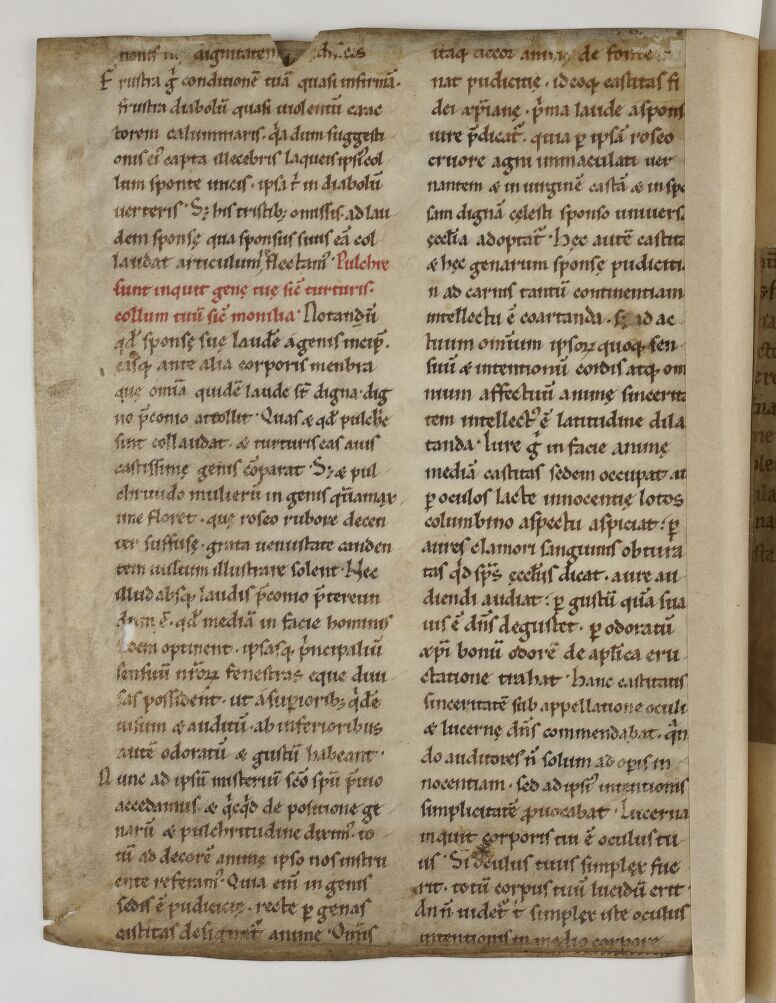 dignitatem
Frustra g̃ conditionē tuā quasi infirmā.
frustra diabolū quasi uiolentū coac
torem calumniaris. q̃a dum suggesti
onis ei᷒ capta illecebris laqueis ipsi᷒ col
lum sponte uincis. ipsa t̃ in diabolū
uerteris. Sꝫ his tristibꝫ omissis. ad lau
dem sponsę qua sponsus suus eā col
laudat articulum flectam᷒. Pulchre
sunt inquit genę tuę sic̄ turturis.
collum tuū sic̄ monilia. Notandū
qd̄ sponsę suę laudē a genis incip̄.
easq; ante alia corporis menbra
quę omīa quidē laude st̄ digna. dig
no p̄conio attollit. Quas & qd̄ pulchre
sint collaudat. & turturis eas auis
castissimę genis cōparat. Sꝫ & pul
chritudo mulierū in genis quā max
ime floret. quę roseo rubore decen
ter suffusę. grata uenustate canden
tem uultum illustrare solent. Nec
illud absq; laudis p̄conio p̄tereun
dum ē. qd̄ mediā in facie hominis
locm optinent. ipsasq; p̄ncipaliū
sensuū nr̄oꝝ fenestras eque diui
sas possident. ut a superioribꝫ q̇dē
uisum & auditū. ab inferioribus
autē odoratū & gustū habeant.
Nunc ad ipsū misteriū sc̄o spū p̄uio
accedamus. & q̇cq̇d de positione ge
narū & pulchritudine dixim᷒. to
tū ad decorē animę ipso nos instru
ente referam᷒. Quia eni in genis
sedis ē pudicicię. recte ꝑ genas
castitas designat̃ animę. Om̄is
itaq; decor animę de fonte
nat pudicitię. ideoq; castitas fi
dei xp̄ianę. p̄ma laude a spons
iure p̄dicat̃. quia ꝑ ipsā roseo
cruore agni inmaculati uer
nantem & in uirginē castā & in spo
sam dignā celesti sponso uniuers
ęcclīa adoptat̃. Hęc autē castita
& hęc genarum sponsę pudiciti
n̄ ad carnis tantū continentiam
intellectu ē coartanda. sꝫ ad ac
tuum omīum ipsoꝝ quoq; sen
suū & intentionū cordis atq; om
nium affectuū animę sincerita
tem intellect᷒ ē latitudine dila
tanda. Iure g̃ in facie animę
mediā castitas sedem occupat. ut
ꝑ oculos lacte innocentię lotos
columbino aspectu aspiciat. ꝑ
aures clamori sanguinis obtura
tas qd̄ sp̄s ęcclīis dicat. aure au
diendi audiat. ꝑ gustū quā sua
uis ē dn̄s degustet. ꝑ odoratū
xp̄i bonū odorē de ap̄lica eru
ctatione trahat. Hanc castitatis
sinceritatē sub appellatione oculi
& lucernę dn̄s commendabat. q̄n
do auditores n̄ solum ad operis in
nocentiam. sed ad ipsi᷒ intentionis
simplicitatē ꝓuocabat. Lucerna
inquit corporis tui ē oculus tu
us. Si oculus tuus simplex fue
rit. totū corpus tuū lucidū erit.
An n̄ uidet᷒ t̃ simplex iste oculus
intentionis in medio corpore